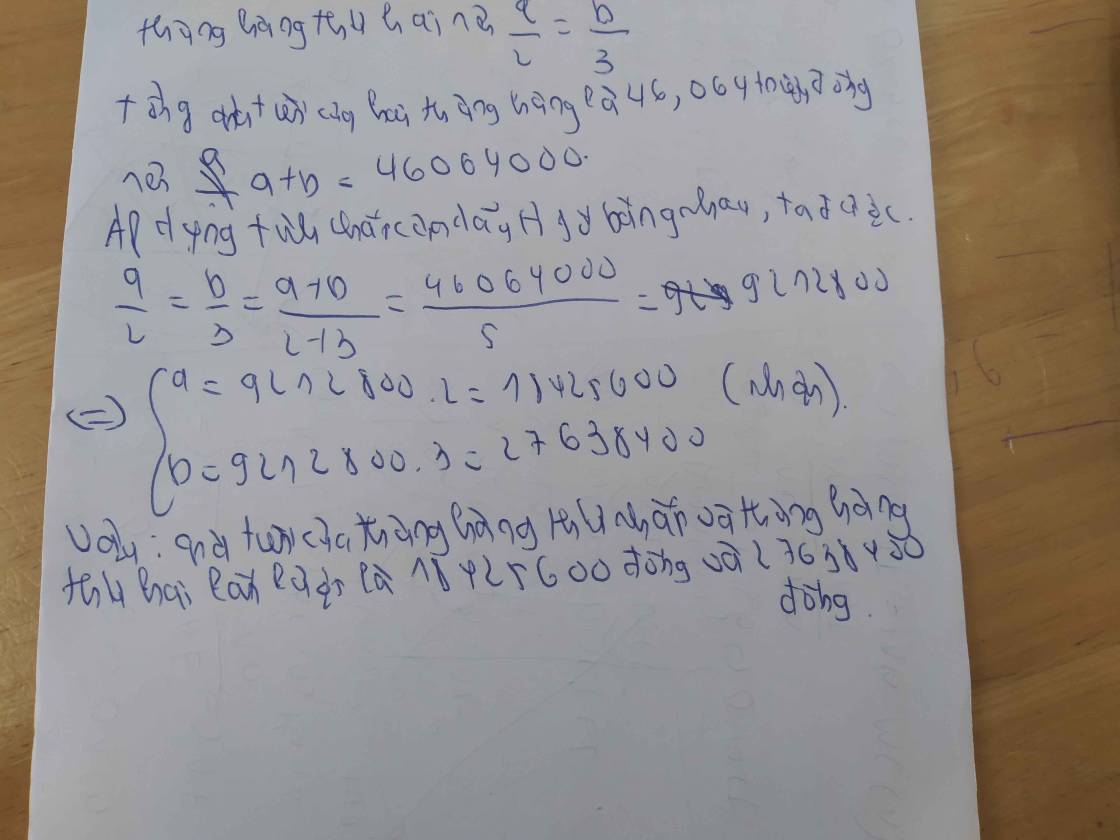 tháng hàng thứ hai nên a/2 = b/3
tổng giá tiền của hai tháng hàng là 46,064 triệu đồng
nên a+b = 46064000.
Áp dụng tính chất của dãy tỉ số bằng nhau, ta được.
a/2 = b/3 = a+b/2+3 = 46064000/5 = 9212800
<=> { a = 9212800 . 2 = 18425600 (nhận).
b = 9212800 . 3 = 27638400
Vậy: giá tiền của tháng hàng thứ nhất và tháng hàng
thứ hai lần lượt là 18425600 đồng và 27638400
đồng.